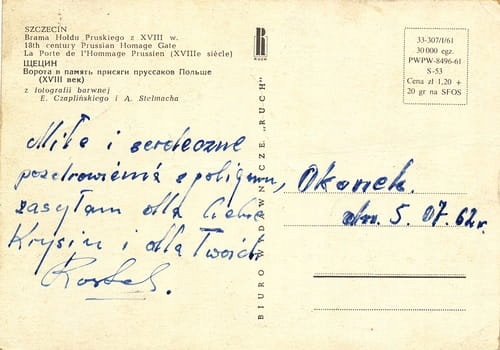 SZCZECIN
Brama Hołdu Pruskiego z XVIII w.
18th century Prussian Homage Gate
La Porte de l'Hommage Prussien (XVIIIe siècle)
ЩЕЦИН
Ворота в память присяги пруссаков Польше
(XVIII век)
z fotografii barwnej
E. Czaplińskiego i A. Stelmacha
RUCH
33-307/I/61
30 000 egz.
PWPW-8496-61
S-53
Cena zł 1,20 +
20 gr na SFOS
BIURO WYDAWNICZE „RUCH"
Miłe i serdeczne
pozdrowienia z poligonu,
zasyłam dla Ciebie
Krysiu i dla Twoich
Okonek.
dn. 5. 07. 62r.